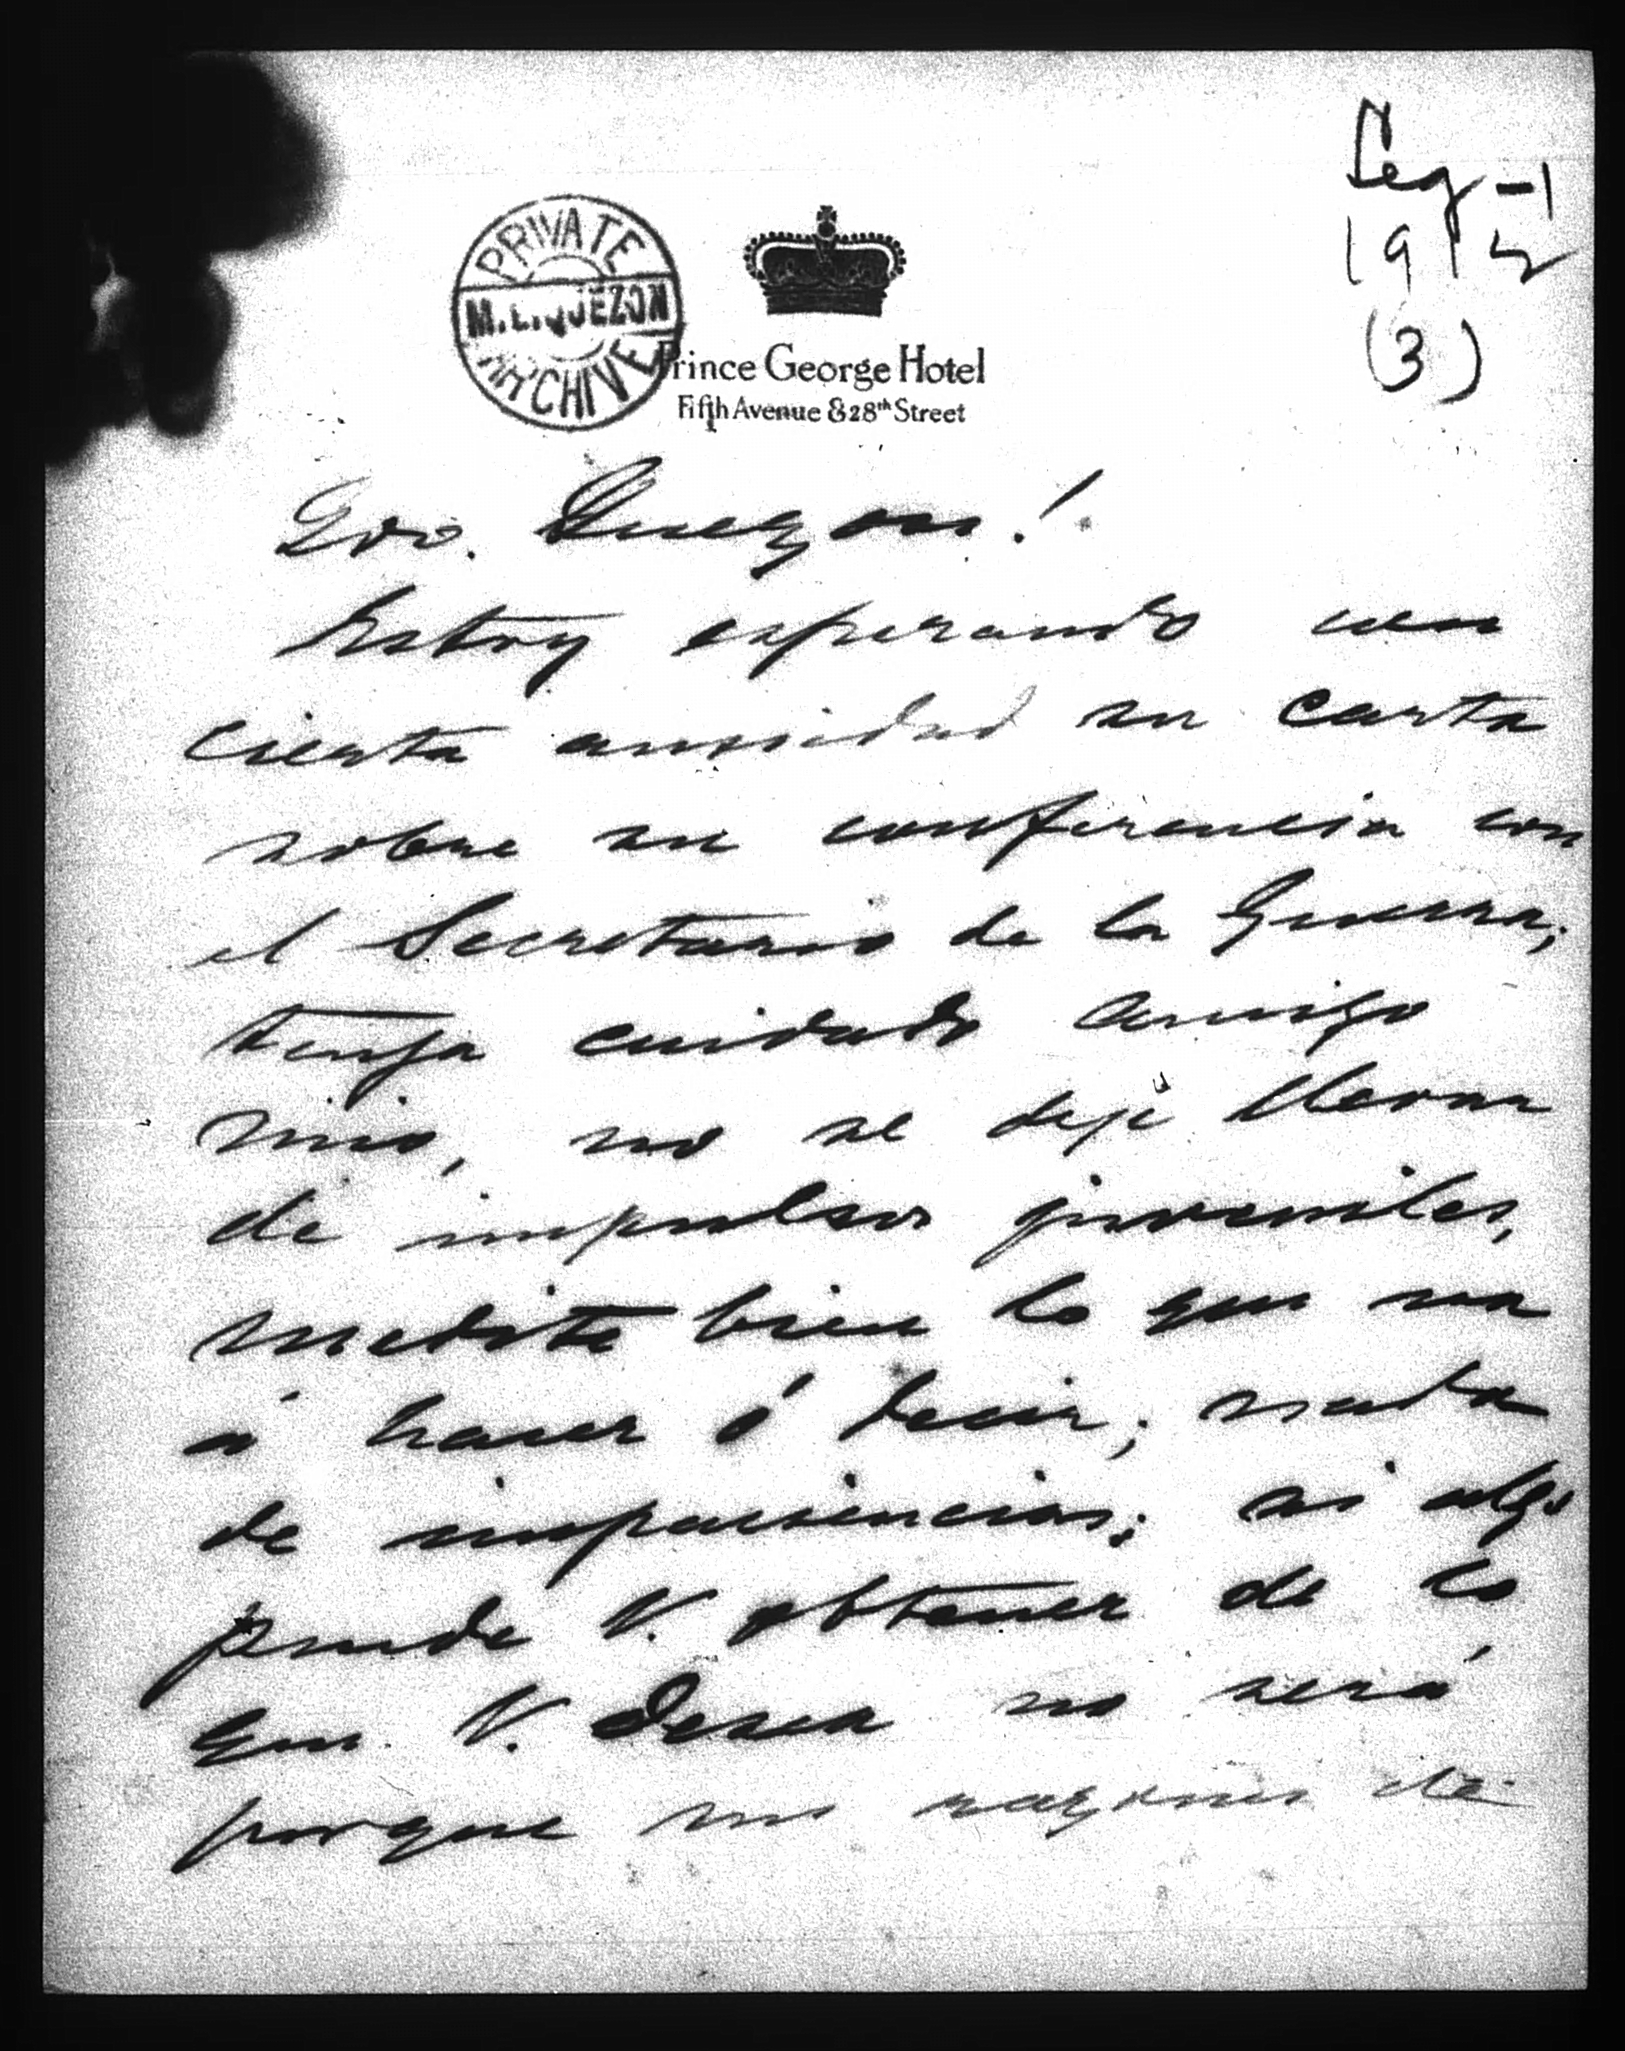 Leg-1
1912
(3)
PRIVATE
M. L. QUEZON
ARCHIVE
Prince George Hotel
Fifth Avenue & 28th Street
Gdo. Quezon!
Estoy esperando con
cierta ansiedad su carta
sobre su conferencia con
el Secretario de la Guerra;
tenga cuidado amigo
mio, no se deje llevar
de impulsos juveniles,
medite bien lo que va
á hacer ó decir; nada
de impaciencias; si algo
puede V. obtener de lo
que V. desea no será
porque sus razones de